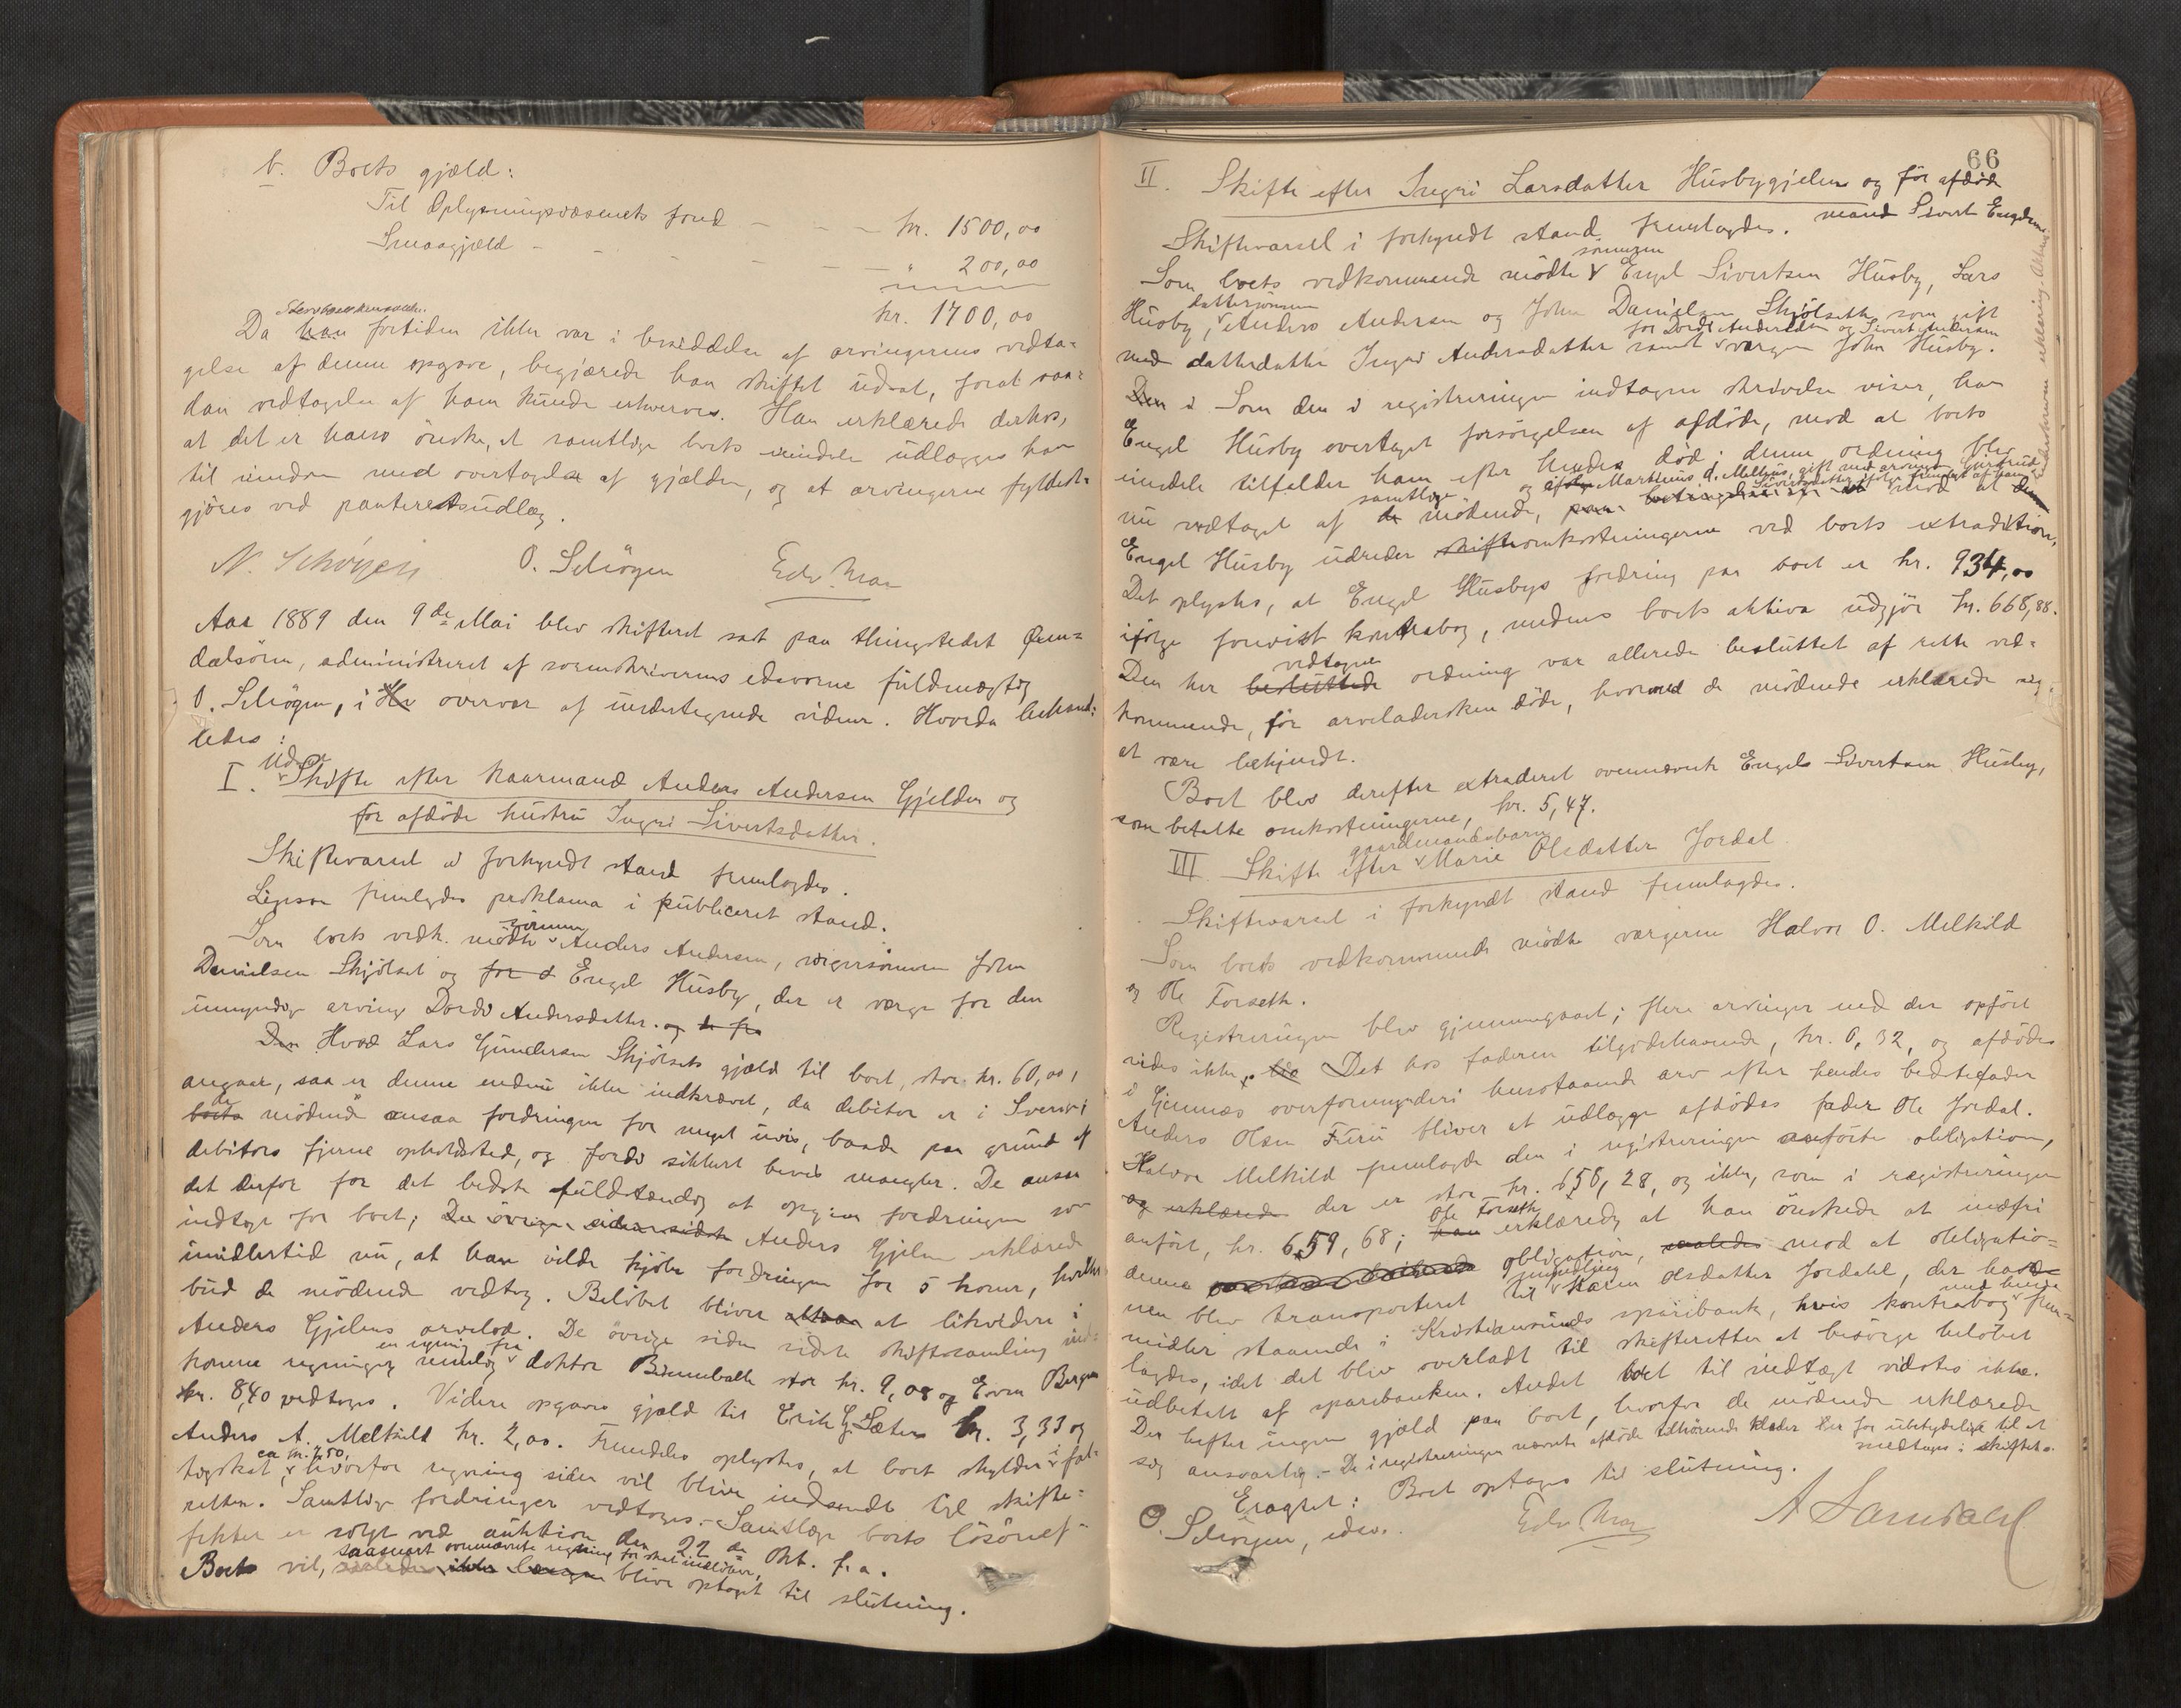 b. Boets gjæld:
Til Oplysningsvæsenets fond - - - kr. 1500,00
Smaagjæld - - - - - - " 200,00
kr. 1700,00
Da han fortiden ikke var i besiddelse af arvingernes vedta=
gelse af denne opgave, begjærede han skiftet udsat, forat saa=
dan vedtagelse af ham kunde erhverves. Han erklærede derhos,
at det er hans önske, at samtlige boets eiendele udlægges ham
til eiendom med overtagelse af gjælden, og at arvingerne fyldest=
gjöres ved panteretsudlæg.
N. Schöyen O. Schögen Edv. Moe
Aar 1889 den 9de Mai blev skifteret sat paa thingstedet Qven=
dalsören, administreret af sorenskriverens edsvorne fuldmægtig
O. Schögen, i overvær af undertegnede vidner. Hvorda behand=
ledes:
I. Skifte efter kaarmand Anders Andersen Gjelden og
för afdöde hustru Ingri Sivertsdatter.
Skiftevarsel i forkyndt stand fremlagdes.
Ligesaa fremlagdes proklama i publiceret stand.
Som boets vedk. mödte sönnen Anders Andersen, svigersönnen John
Danielsen Skjölset og for d Engel Husby, der er værge for den
umyndige arving Dordi Andersdatter. og
Hvad Lars Gundersen Skjölsets gjæld til boet, stor kr. 60,00,
angaar, saa er denne endnu ikke indkrævet, da debitor er i Sverige;
de mödende ansaa fordringen for meget uvis, baade paa grund af
debitors fjerne opholdsted, og fordi sikkert bevis mangler. De ansaa
det derfor for det bedste fuldstændig at opgive fordringen som
indtægt for boet; De övrige siden sidste Anders Gjelen erklærede
imidlertid nu, at han vilde kjöbe fordringen for 5 kroner, hvilket
bud de mödende vedtog. Belöbet bliver at likvidere i
Anders Gjelens arvelod. De övrige siden sidste skiftesamling ind=
komne regninger nemlig en regning fra doktor Bismeballe stor kr. 9,08 og Even Bergem
kr. 8,40 vedtoges. Videre opgaves gjæld til Erik G. Sæter kr. 3,33 og
Anders A. Melkild kr. 2,00. Fremdeles oplystes, at boet skylder i fat=
tigskat ca kr. 2,50, hvorfor regning siden vil blive indsendt til skifte=
retten. Samtlige fordringer vedtoges. - Samtlige boets lösöreef=
fekter er solgt ved auktion den 22de Okt. f. a.
Boets vil, saasnart ovennævnte regning for skat indlöber, blive optaget til slutning.
66
II. Skifte efter Ingri Larsdatter Husbygjelen og för afdöde
mand Sivert Engelsen
Skiftevarsel i forkyndt stand fremlagdes.
Som boets vedkommende mödte sönnen Engel Sivertsen Husby, Lars
Husby, dattersönnen Anders Andersen og John Danielsen Skjölseth, som gift
med datterdatter Ingri Andersdatter samt for Dordi Andersdtr og Sivert Andersen værgen John Husby.
Som den i registreringen indtagne skrivelse viser, har
Engel Husby overtaget forsörgelsen af afdöde, mod at boets
eiendele tilfalder ham efter hendes död; denne ordning blev
og Martinus d. Melhus, gift med arving Gjertrud
nu vedtaget af samtlige mödende, mod at
Engel Husby udreder omkostningerne ved boets extradition.
Det oplystes, at Engel Husbys fordring paa boet er kr. 934,00
ifölge forevist kontrabog, medens boets aktiva udgjör kr. 668,88.
Den her besluttede vedtagne ordning var allerede besluttet af rette ved=
kommende, för arveladersken döde, hvormed de mödende erklærede sig
at være bekjendt.
Boet blev derefter extraderet ovennævnte Engel Sivertsen Husby,
som betalte omkostningerne, kr. 5,47.
III. Skifte efter gaardmandsbarn Marie Olsdatter Jordal.
Skiftevarsel i forkyndt stand fremlagdes.
Som boets vedkommende mödte værgerne Halvor O. Melkild
og Ole Forseth.
Registreringen blev gjennemgaaet; flere arvinger end der opfört
vides ikke. Det hos faderen tilgodehavende, kr. 0,32, og afdödes
i Gjemnæs overformynderi henstaaende arv efter hendes bedstefader
Anders Olsen Furu bliver at udlægge afdödes fader Ole Jordal.
Halvor Melkild fremlagde den i registreringen anförte obligation,
og erklærede der er stor kr. 656,28, og ikke, som i registreringen
anfört, kr. 659,68; Ole Forseth erklærede, at han önskede at indfri
denne obligation, saaledes mod at obligatio=
nen blev transporteret til myndling Karen Olsdatter Jordahl, der havde
midler staaende i Kristiansunds sparebank, hvis kontrabog med hende frem=
lagdes, idet det blev overladt til skifteretten at besörge belöbet
udbetalt af sparebanken. Andet boet til indtægt vidstes ikke.
Der hefter ingen gjæld paa boet, hvorfor de mödende erklærede
sig ansvarlig. - De i registreringen nævnte afdöde tilhörende klæder er for ubetydelige til at
medtages i skiftet.
Eragtet: Boet optages til slutning.
O. Schögen, edsv. Edv. Moe A Sandael